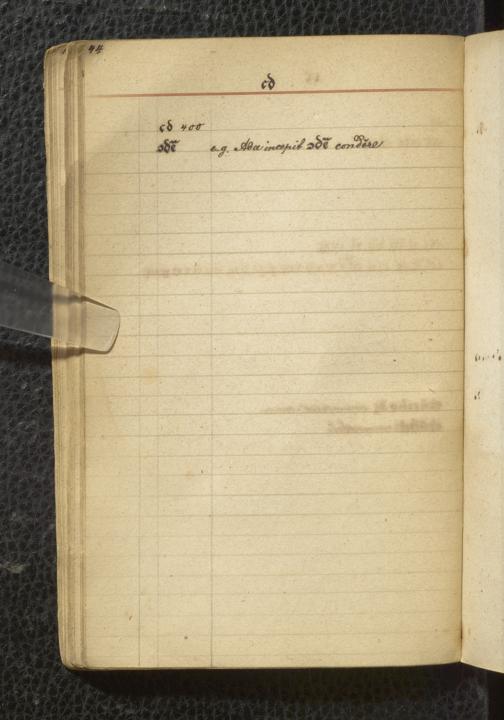 44
cd
cd 400
ɔdē e.g. Ada incepit ɔdē condēre